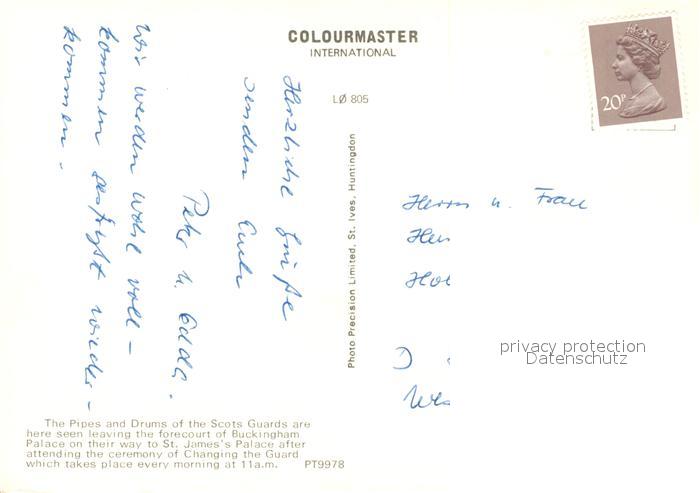 COLOURMASTER
INTERNATIONAL
LØ 805
20P
Herzliche Grüße
senden Euch
Peter u. Edda.
Wir werden wohl voll-
kommen geschafft wieder-
kommen.
Photo Precision Limited, St. Ives, Huntingdon
Herrn u. Frau
privacy protection
Datenschutz
The Pipes and Drums of the Scots Guards are
here seen leaving the forecourt of Buckingham
Palace on their way to St. James's Palace after
attending the ceremony of Changing the Guard
which takes place every morning at 11a.m. PT9978